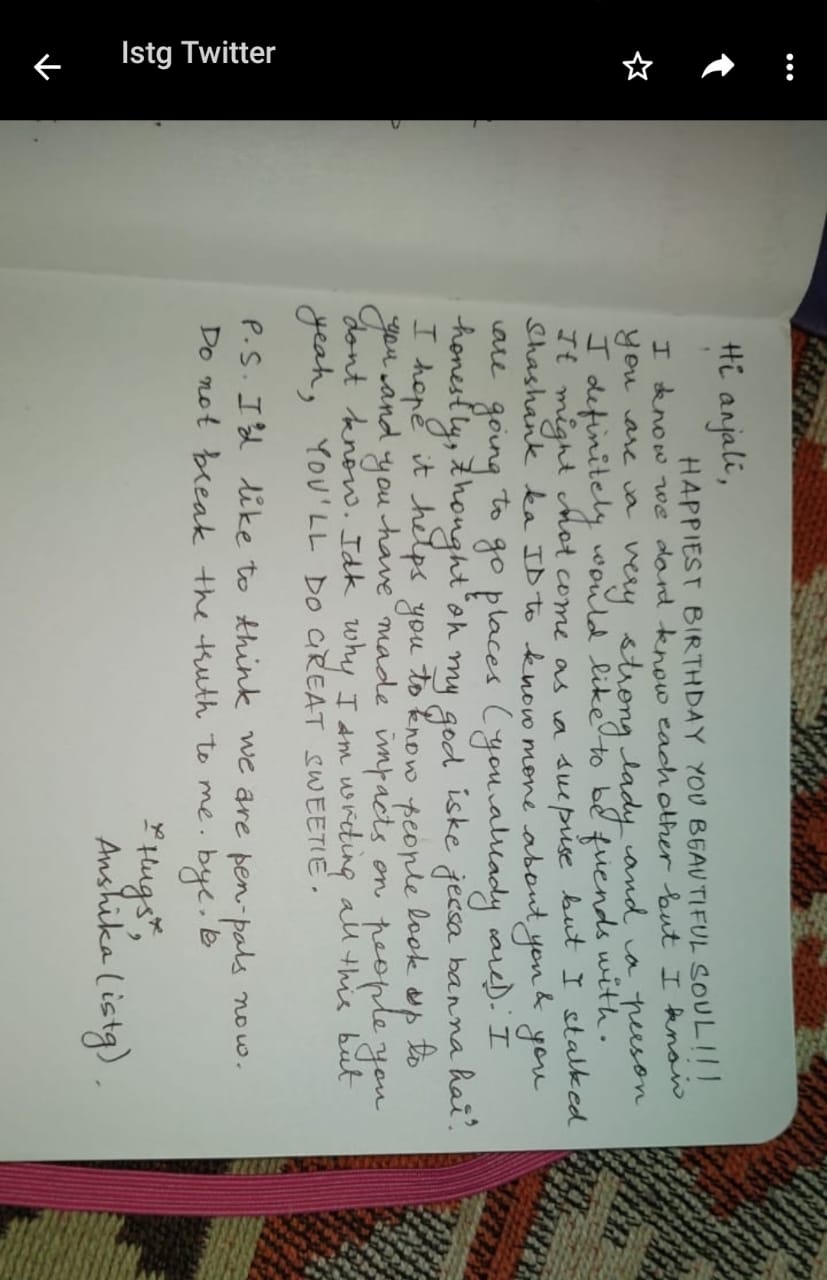 Istg Twitter
Hi anjali,
HAPPIEST BIRTHDAY YOU BEAUTIFUL SOUL!!!
I know we dont know each other but I know
you are a very strong lady and a person
I definitely would like to be friends with.
It might not come as a surpuse but I stalked
Shashank ka ID to know more about you & you
are going to go places (you already are!). I
honestly, thought "oh my god iske jessa banna hai".
I hope it helps you to know people look up to
you and you have made impacts on people you
dont know. Idk why I am writing all this but
yeah, YOU'LL DO GREAT SWEETIE.
P.S. I'd like to think we are pen-pals now.
Do not break the truth to me. bye.
*Hugs*,
Anshika (istg).